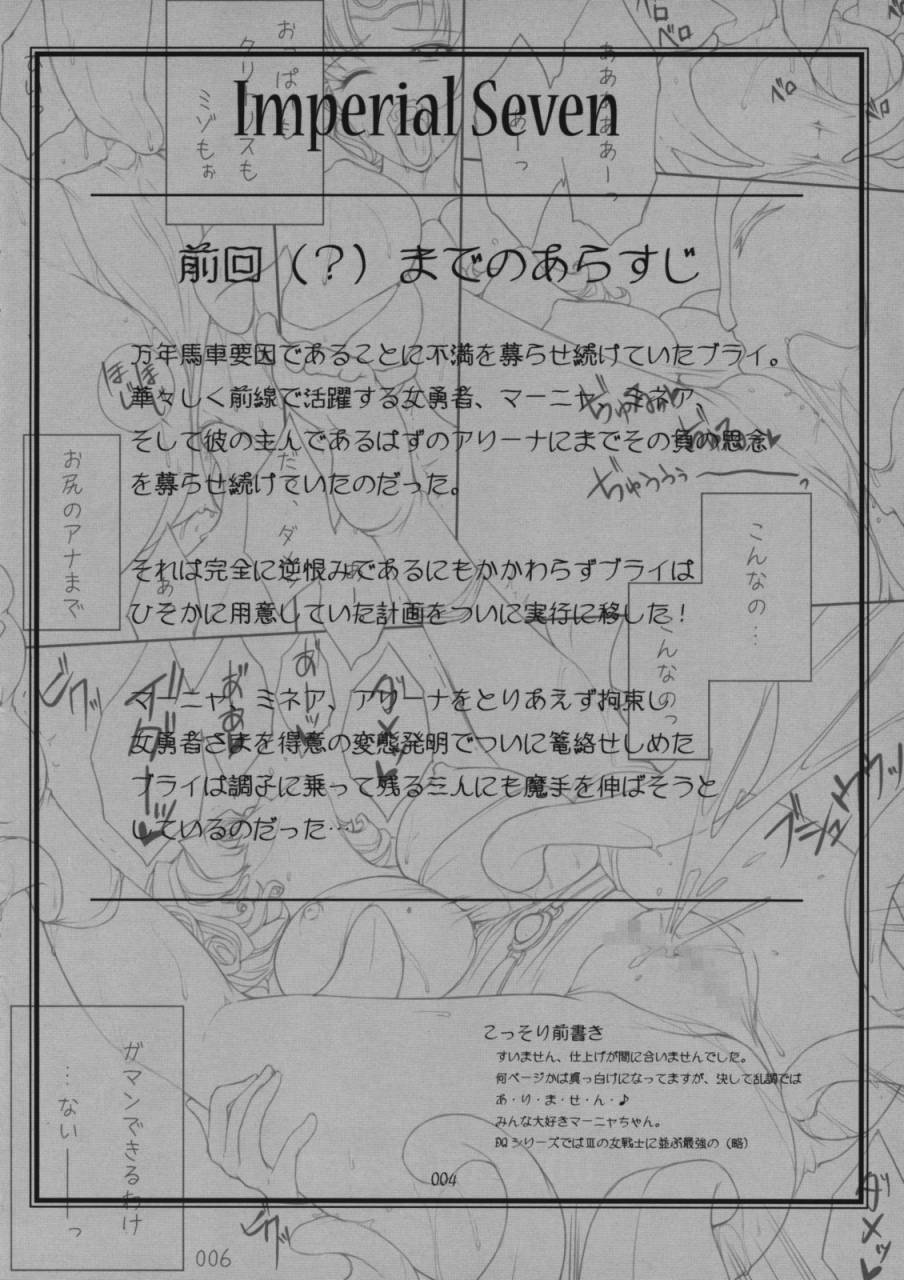 Imperial Seven
前回（？）までのあらすじ
万年馬車要因であることに不満を募らせ続けていたブライ。
華々しく前線で活躍する女勇者、マーニャ、ミネア、
そして彼の主人であるはずのアリーナにまでその負の思念
を募らせ続けていたのだった。
それは完全に逆恨みであるにもかかわらずブライは
ひそかに用意していた計画をついに実行に移した！
マーニャ、ミネア、アリーナをとりあえず拘束し
女勇者さまを得意の変態発明でついに篭絡せしめた
ブライは調子に乗って残る三人にも魔手を伸ばそうと
しているのだった…
こっそり前書き
すいません、仕上げが間に合いませんでした。
何ページかは真っ白けになってますが、決して乱調では
あ・り・ま・せ・ん・♪
みんな大好きマーニャちゃん。
DQシリーズではⅢの女戦士に並ぶ最強の（略）
004
おっぱいも
クリ
ミゾもぉ
お尻のアナまで
こんなの…
こんなのっ
ガマンできるわけ
…ない――――っ
ベロ
ベロ
ビクッ
ブシュ
ダメ
ビクッ
006